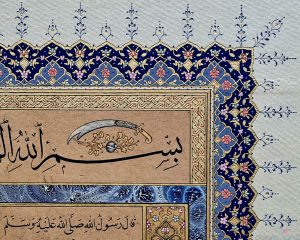 بسم الله
قال رسول الله صلى الله عليه وسلم